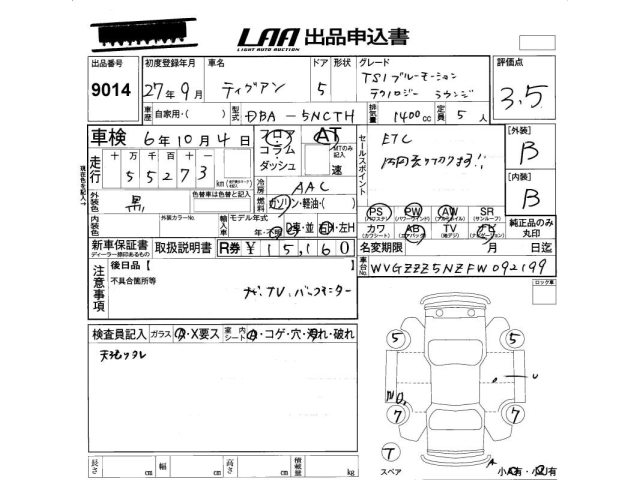 LAA 出品申込書
LIGHT AUTO AUCTION
出品番号 9014
初度登録年月 27年9月
車名 ティグアン
ドア 5
形状
グレード TSIブルーモーション
テクノロジー ラウンジ
評価点 3.5
車歴 自家用・( )
型式 DBA-5NCTH
排気量 1400cc
定員 5人
車検 6年10月4日
フロア コラム ダッシュ
AT
MTのみ記入 速
セールスポイント
ETC
[外装] B
[内装] B
走行 十万千百十 km
55273
冷房 AAC
燃料 ガソリン・軽油・( )
外装色 黒
色替車は色替と記入
内装色
外装カラーNo.
輸入車 モデル年式
年・不明 D車・並 右H・左H
PS (パワステ) PW (パワーウインド) AW (アルミホイル) SR (サンルーフ)
カワ (カワシート) AB (エアバック) TV (地デジ) ナビ (ナビゲーション)
純正品のみ丸印
新車保証書
ディーラー捺印あるもの
取扱説明書
R券 ¥15,160
名変期限 月 日迄
車台No. WVGZZZ5NZFW092199
注意事項
後日品【
不具合箇所等
ナビ、TV、バックモニター
ロック車
検査員記入 ガラス X要ス 室内シート コゲ・穴・汚れ・破れ
天張りタレ
5 5
7 7
T
スペア
長さ cm 幅 cm 高さ cm 積載量 kg